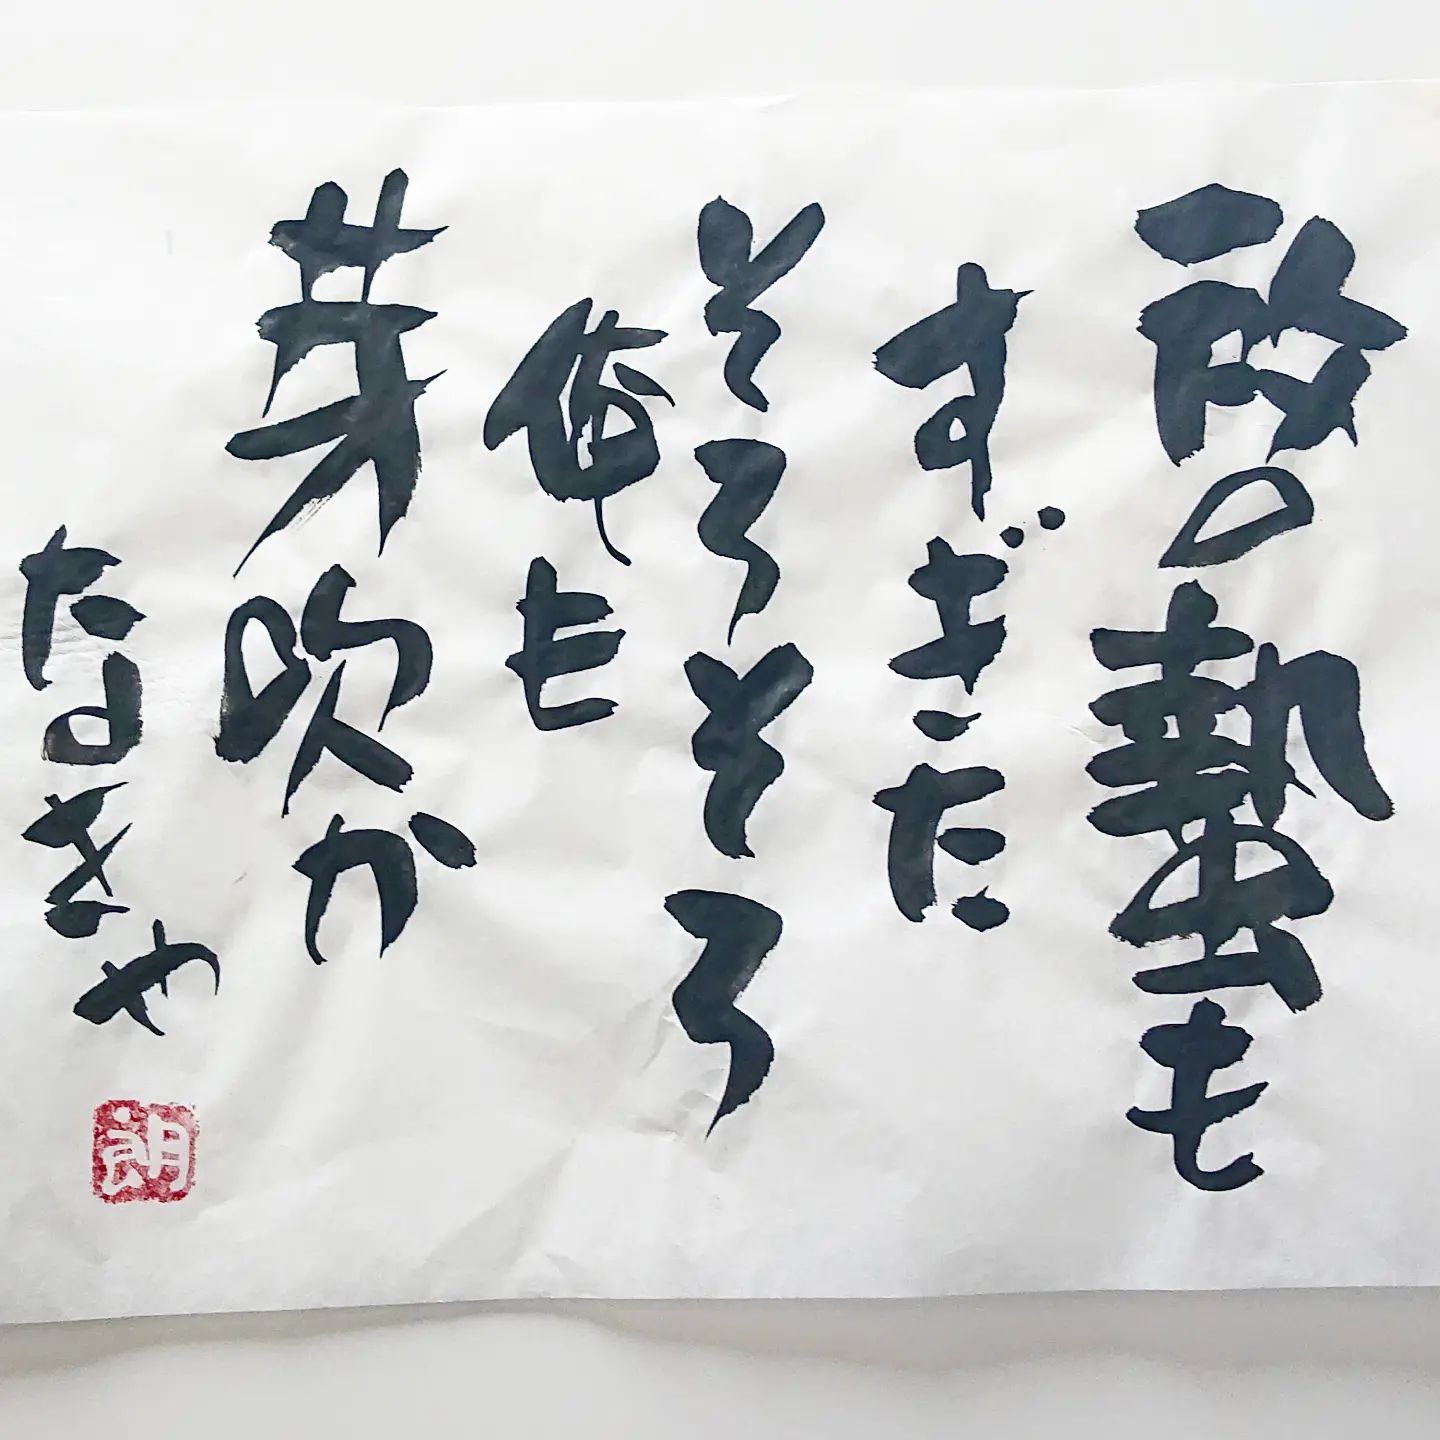 啓の蟄も
すぎた
そろそろ
俺も
芽吹か
なきゃ
朗